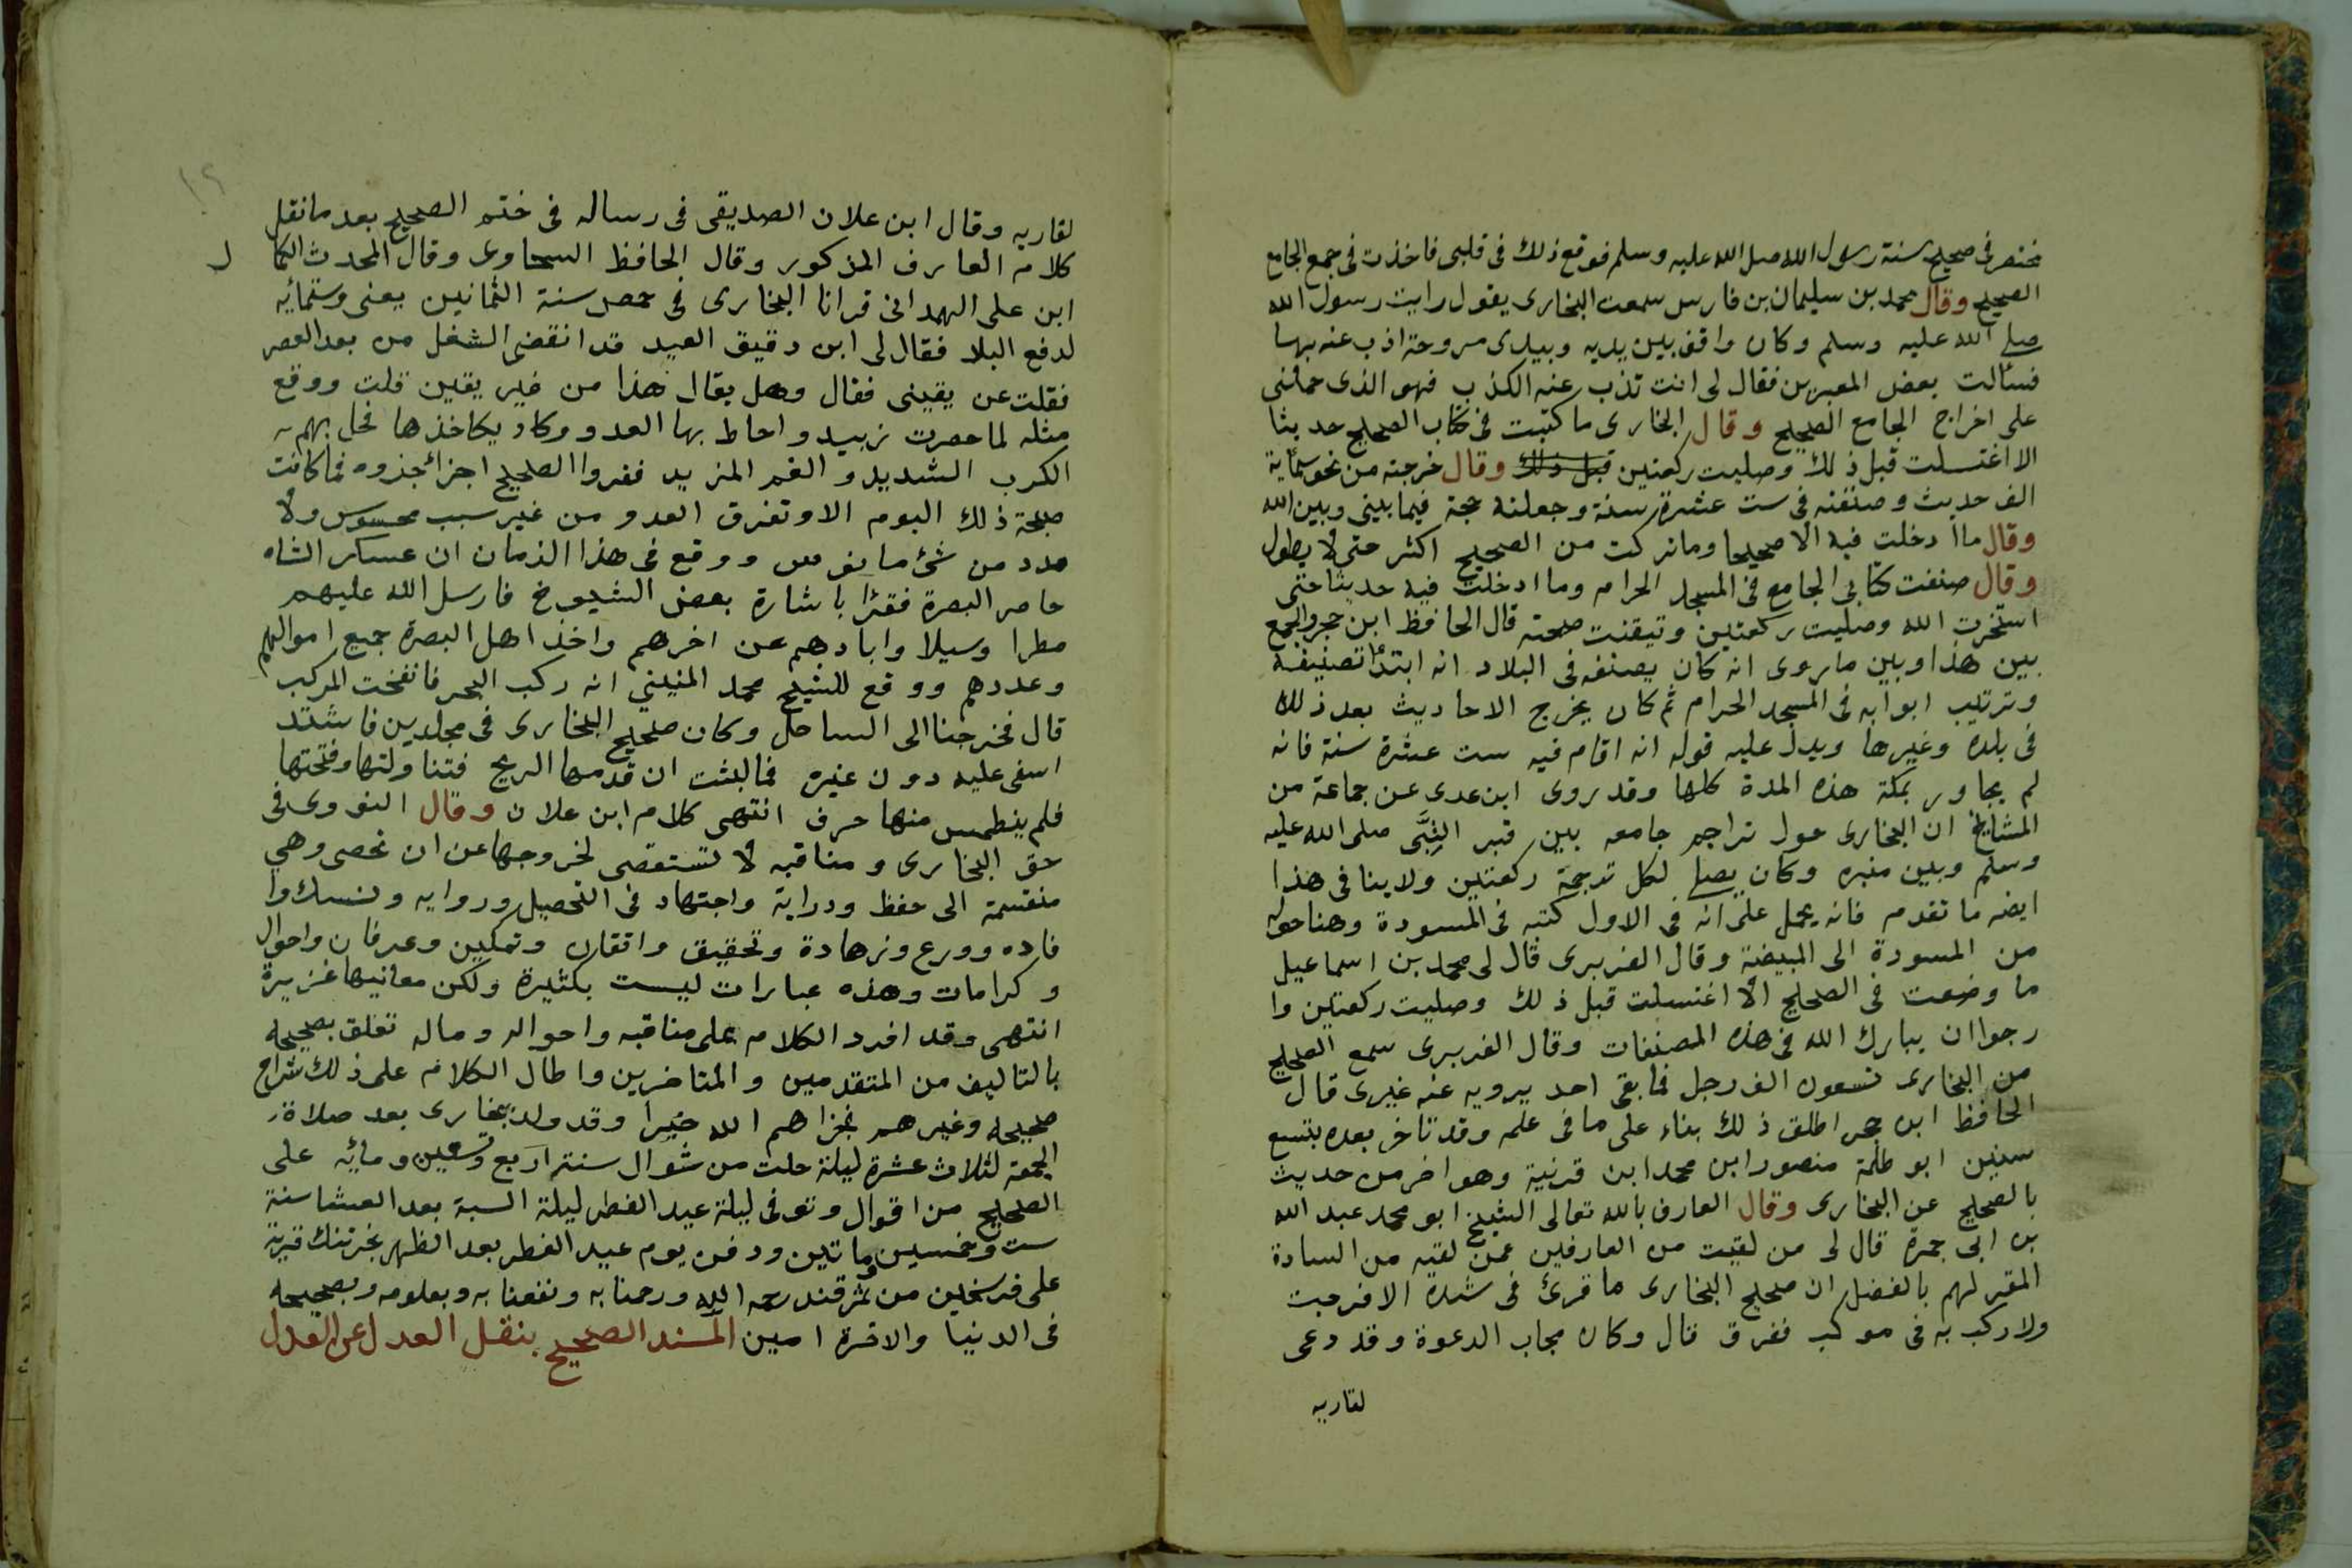 مختصر فى صحيح سنة رسول الله صلى الله عليه وسلم فوقع ذلك فى قلبى فاخذت فى جمع الجامع
الصحيح وقال محمد بن سليمان بن فارس سمعت البخارى يقول رايت رسول الله
صلى الله عليه وسلم وكان واقف بين يديه وبيدى مروحة اذب عنه بها
فسئالت بعض المعبرين فقال لى انت تذب عنه الكذب فهو الذى حملنى
على اخراج الجامع الصحيح وقال البخارى ما كتبت فى كتاب الصحيح حديثا
الا اغتسلت قبل ذلك وصليت ركعتين قبل ذلك وقال خرجته من نحو ستماية
الف حديث وصنفته فى ست عشرة سنة وجعلته حجة فيما بينى وبين الله
وقال ما ادخلت فيه الا صحيحا وما تركت من الصحيح اكثر حتى لا يطول
وقال صنفت كتابى الجامع فى المسجد الحرام وما ادخلت فيه حديثا حتى
استخرت الله وصليت ركعتين وتيقنت صحته قال الحافظ ابن حجر والجمع
بين هذا وبين ماروى انه كان يصنفه فى البلاد انه ابتدأ تصنيفه
وترتيب ابوابه فى المسجد الحرام ثم كان يخرج الاحاديث بعد ذلك
فى بلده وغيرها ويدل عليه قوله انه اقام فيه ست عشرة سنة فانه
لم يجاور بمكة هذه المدة كلها وقد روى ابن عدى عن جماعة من
المشايخ ان البخارى حول تراجم جامعه بين قبر النبى صلى الله عليه
وسلم وبين منبره وكان يصلى لكل ترجمة ركعتين ولا ينافى هذا
ايضه ما تقدم فانه يحمل على انه فى الاول كتبه فى المسودة وهنا حوله
من المسودة الى المبيضة وقال الفربرى قال لى محمد بن اسماعيل
ما وضعت فى الصحيح الا اغتسلت قبل ذلك وصليت ركعتين وا
رجوا ان يبارك الله فى هذه المصنفات وقال الفربرى سمع الصحيح
من البخارى تسعون الف رجل فما بقى احد يرويه عنه غيرى قال
الحافظ ابن حجر اطلق ذلك بناء على ما فى علمه وقد تاخر بعده بتسع
سنين ابو طلحة منصور ابن محمد ابن قرنية وهو اخر من حديث
بالصحيح عن البخارى وقال العارف بالله تعالى الشيخ ابو محمد عبد الله
بن ابى جمرة قال لى من لقيت من العارفين عمن لقيه من السادة
المقر لهم بالفضل ان صحيح البخارى ما قرئ فى شدة الا فرجت
ولا ركب به فى مركب فغرق قال وكان مجاب الدعوة وقد دعى
لقاريه
لقاريه وقال ابن علان الصديقى فى رساله فى ختم الصحيح بعد ما نقل
كلام العارف المذكور وقال الحافظ السخاوى وقال المحدث الكما ل
ابن على الهمدانى قرانا البخارى فى حمص سنة الثمانين يعنى وستمائه
لدفع البلا فقال لى ابن دقيق العيد قد انقضى الشغل من بعد العصر
فقلت عن يقينى فقال وهل يقال هذا من غير يقين قلت ووقع
مثله لما حصرت زبيد واحاط بها العدو وكاد يكاخذها فحل بهم
الكرب الشديد والغم المزيد فقروا الصحيح اجزائجذوه فما كانت
صبحة ذلك اليوم الا وتفرق العدو من غير سبب محسوس ولا
مدد من شئ ووقع فى هذا الزمان ان عسكر الشاه
حاصر البصرة فقرا باشارة بعض الشيوخ فارسل الله عليهم
مطرا وسيلا وابادهم عن اخرهم واخذ اهل البصرة جميع اموالهم
وعددهم ووقع للشيخ محمد المنينى انه ركب البحر فانفخت المركب
قال فخرجنا الى الساحل وكان صحيح البخارى فى مجلدين فاشتد
اسفى عليه دون غيره فما لبثت ان قدمها الريح فتناولتها وفتحتها
فلم ينطمس منها حرف انتهى كلام ابن علان وقال النووى فى
حق البخارى ومناقبه لا تستقصى لخروجها عن ان تحصى وهى
منقسمة الى حفظ ودراية واجتهاد فى التحصيل وروايه ونسك وا
فاده وورع وزهادة وتحقيق واتقان وتمكين وعرفان واحوال
وكرامات وهذه عبارات ليست بكثيرة ولكن معانيها غزيرة
انتهى وقد افرد الكلام على مناقبه واحواله وماله تعلق بصحيحه
بالتاليف من المتقدمين والمتاخرين واطال الكلام على ذلك شراح
صحيحه وغيرهم فجزاهم الله خيرا وقد ولد ببخارى بعد صلاة
الجمعة لثلاث عشرة ليلة خلت من شوال سنة اربع وتسعين ومائه على
الصحيح من اقوال وتوفى ليلة عيد الفطر ليلة السبة بعد العشا سنة
ست وخمسين وماتين ودفن يوم عيد الفطر بعد الظهر بخرتنك قرية
على فرسخين من سمرقند رحمه الله ورحمنا به ونفعنا به وبعلومه وبصحيحه
فى الدنيا والاخرة امين المسند الصحيح بنقل العدل عن العدل